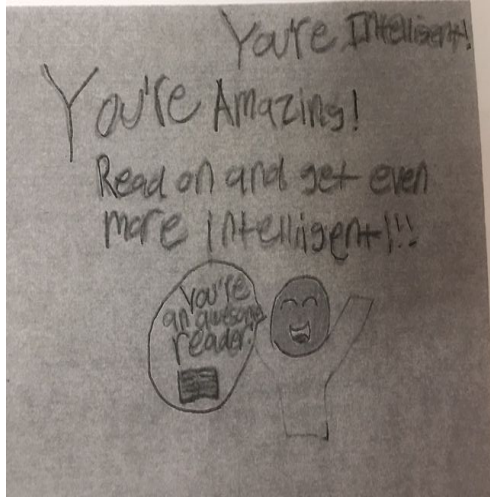 You're Intelligent!
You're Amazing!
Read on and get even
more intelligent!!!
You're
an awesome
reader.